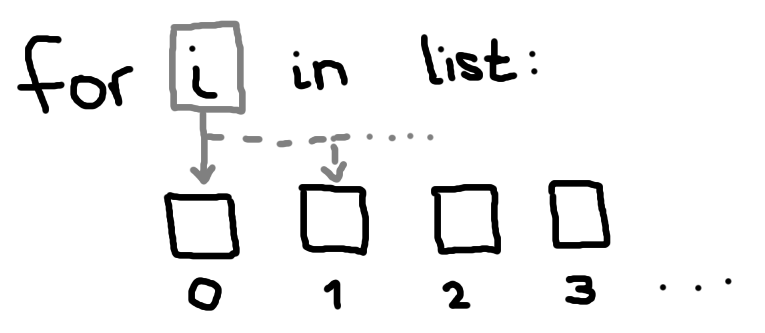 for i in list:
0 1 2 3 ...